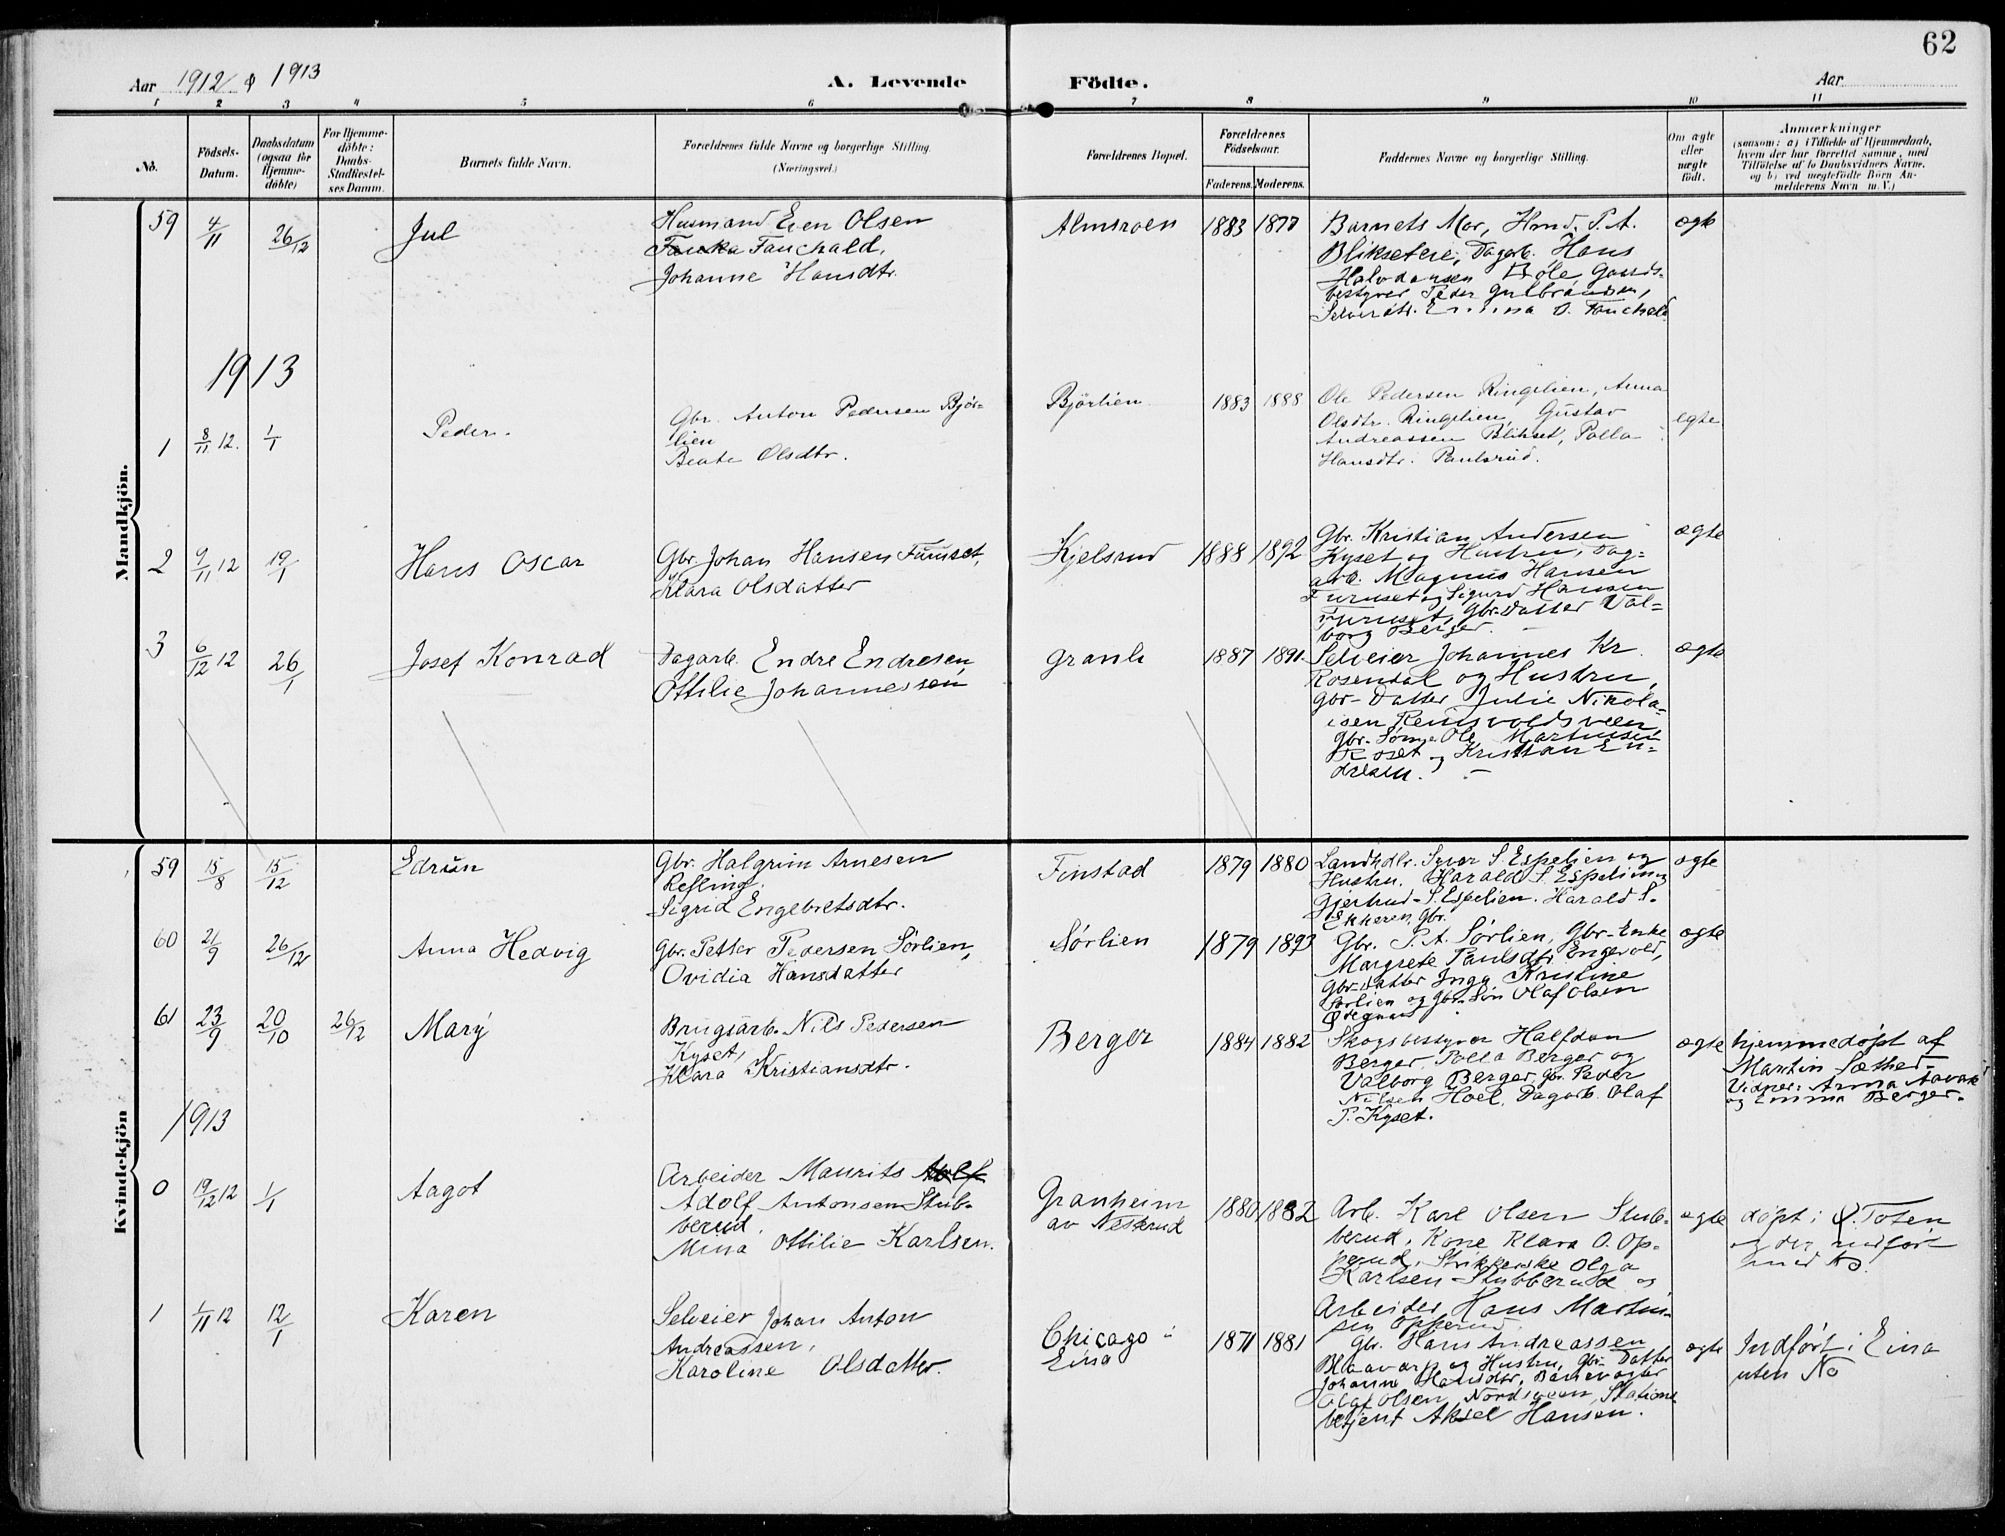 62
Aar 1912 & 1913
A. Levende Födte.
Aar
1 2 3 4 5 6 7 8 9 10 11
No.
Födsels-Datum.
Daabsdatum (ogsaa for Hjemmedöbte)
For Hjemmedöbte: Daabs-Stadfestelses Datum.
Barnets fulde Navn.
Forældrenes fulde Navne og borgerlige Stilling. (Næringsvei.)
Forældrenes Bopæl.
Forældrenes Födselsaar.
Faderens. Moderens.
Faddernes Navne og borgerlige Stilling.
Om ægte eller uægte födt.
Anmærkninger
(saasom: a) i Tilfælde af Hjemmedaab,
hvem der har forrettet samme, med
Tilföielse af to Daabsvidners Navne,
og b) ved uegtefödte Börn Anmelderens Navn m. V.)
Mandkjön.
59 4/11 26/12 Jul
Husmand Even Olsen
Fauchald,
Johanne Hansdtr.
Almsroen 1883 1877
Barnets Mor, Hmd. P. A.
Blikseteie, Dagarb. Hans
Halvdansen Böle Gaards-
bestyrer Peder Gulbrandsen,
Selveierdtr. O. Fauchald
ægte
1913
1 8/11 12. 1/1 Peder.
Gbr. Anton Pedersen Björ-
lien
Beate Olsdtr.
Björlien 1883 1888
Ole Pedersen Ringelien, Anna
Olsdtr. Ringelien, Gustav
Andreassen Blikset, Palla
Hansdtr. Paulsrud.
egte
2 9/11 12 19/1 Hans Oscar
Gbr. Johan Hansen Furuset,
Klara Olsdatter
Kjelsrud 1888 1892
Gbr. Kristian Andersen
Kyset og Hustru, Dag-
arb. Magnus Hansen
Furuset og Sigurd Hansen
Furuset, Gbr-Datter Val-
borg Berger.
ægte
3 6/12 12 26/1 Josef Konrad
Dagarb. Endre Endresen,
Ottilie Johannessen
Granli 1887 1891.
Selveier Johannes Kr.
Rosendal og Hustru,
Gbr-Datter Julie Nikola-
isen Reinsvoldsveen
Gbr. Søn Ole Martinsen
Roset og Kristian En-
dresen.
ægte
Kvindekjön
59 15/8 15/12 Edrun
Gbr. Halgrim Arnesen
Refling.
Sigrid Engebretsdtr.
Finstad 1879 1880
Landhdlr. Syver S. Espelien og
Hustru, Harald S. Espelien og
Gjertrud S. Espelien. Harald S.
Ekkeren, Gbr.
ægte
60 21/9 26/12 Anna Hedvig
Gbr. Petter Pedersen Sörlien,
Ovidia Hansdatter
Sørlien 1879 1893
Gbr. P. A. Sörlien, Gbr-Enke
Margrete Paulsdtr. Engevold,
Gbr-datter Inga Kristine
Sørlien og Gbr. Søn Olaf Olsen
Ødegaard
ægte
61 23/9 20/10 26/12 Mary
Brugsarb. Nils Pedersen
Kyset,
Klara Kristiansdtr.
Berger 1884 1882
Skogsbestyrer Halfdan
Berger, Palla Berger og
Valborg Berger, Gbr. Peder
Nilsen Hoel, Dagarb. Olaf
P. Kyset.
ægte
hjemmedøpt af
Martin Sæther.
Vidner: Anna
og Emma Berger.
1913
0 19/12 12 1/1 Aagot
Arbeider Maurits
Adolf Antonsen Stub-
berud.
Mina Ottilie Karlsen.
Granheim
av Neskrud 1880 1882
Arb. Karl Olsen Stub-
berud, Kone Klara O. Op-
perud, Strikkerske Olga
Karlsen Stubberud og
Arbeider Hans Martin-
sen Opperud.
ægte
døpt i Ø. Toten
og der indført
med No
1 1/11 12 12/1 Karen
Selveier Johan Anton
Andreassen,
Karoline Olsdatter.
Chicago i
Eina 1871 1881
Gbr. Hans Andreassen
Blaavarp og Hustru, Gbr. Datter
Johanne Hansdtr, Banevogter
Olaf Olsen Nordsveen, Stations-
betjent Aksel Hansen.
ægte
Indført i Eina
uten No